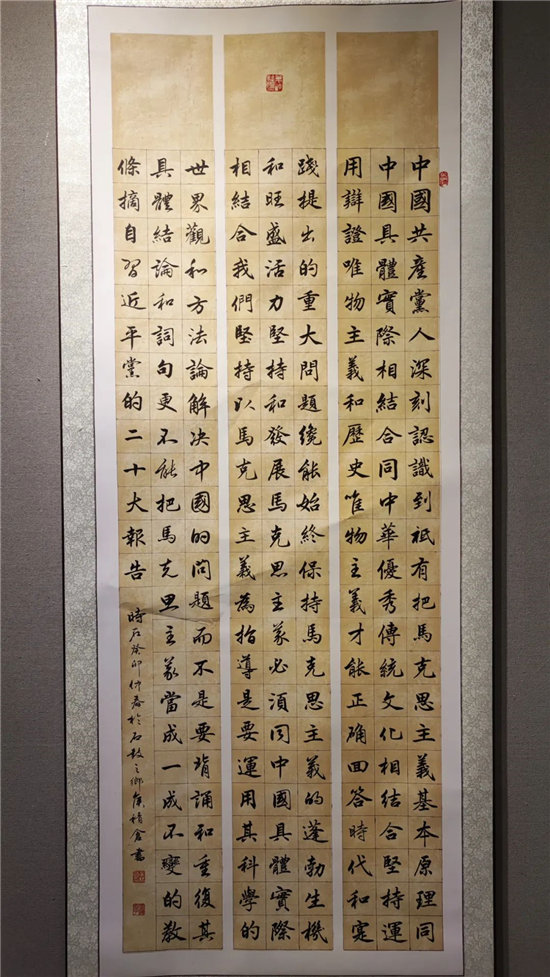 中國共產黨人深刻認識到祗有把馬克思主義基本原理同
中國具體實際相結合同中華優秀傳統文化相結合堅持運
用辯證唯物主義和歷史唯物主義才能正确回答時代和寔
踐提出的重大問題纔能始終保持馬克思主義的蓬勃生機
和旺盛活力堅持和發展馬克思主義必須同中國具體實際
相結合我們堅持以馬克思主義為指導是要運用其科學的
世界觀和方法論解决中國的問題而不是要背誦和重復其
具體結論和詞句更不能把馬克思主義當成一成不變的教
條摘自習近平黨的二十大報告
時在癸卯仲春於石鼓之鄉倉書